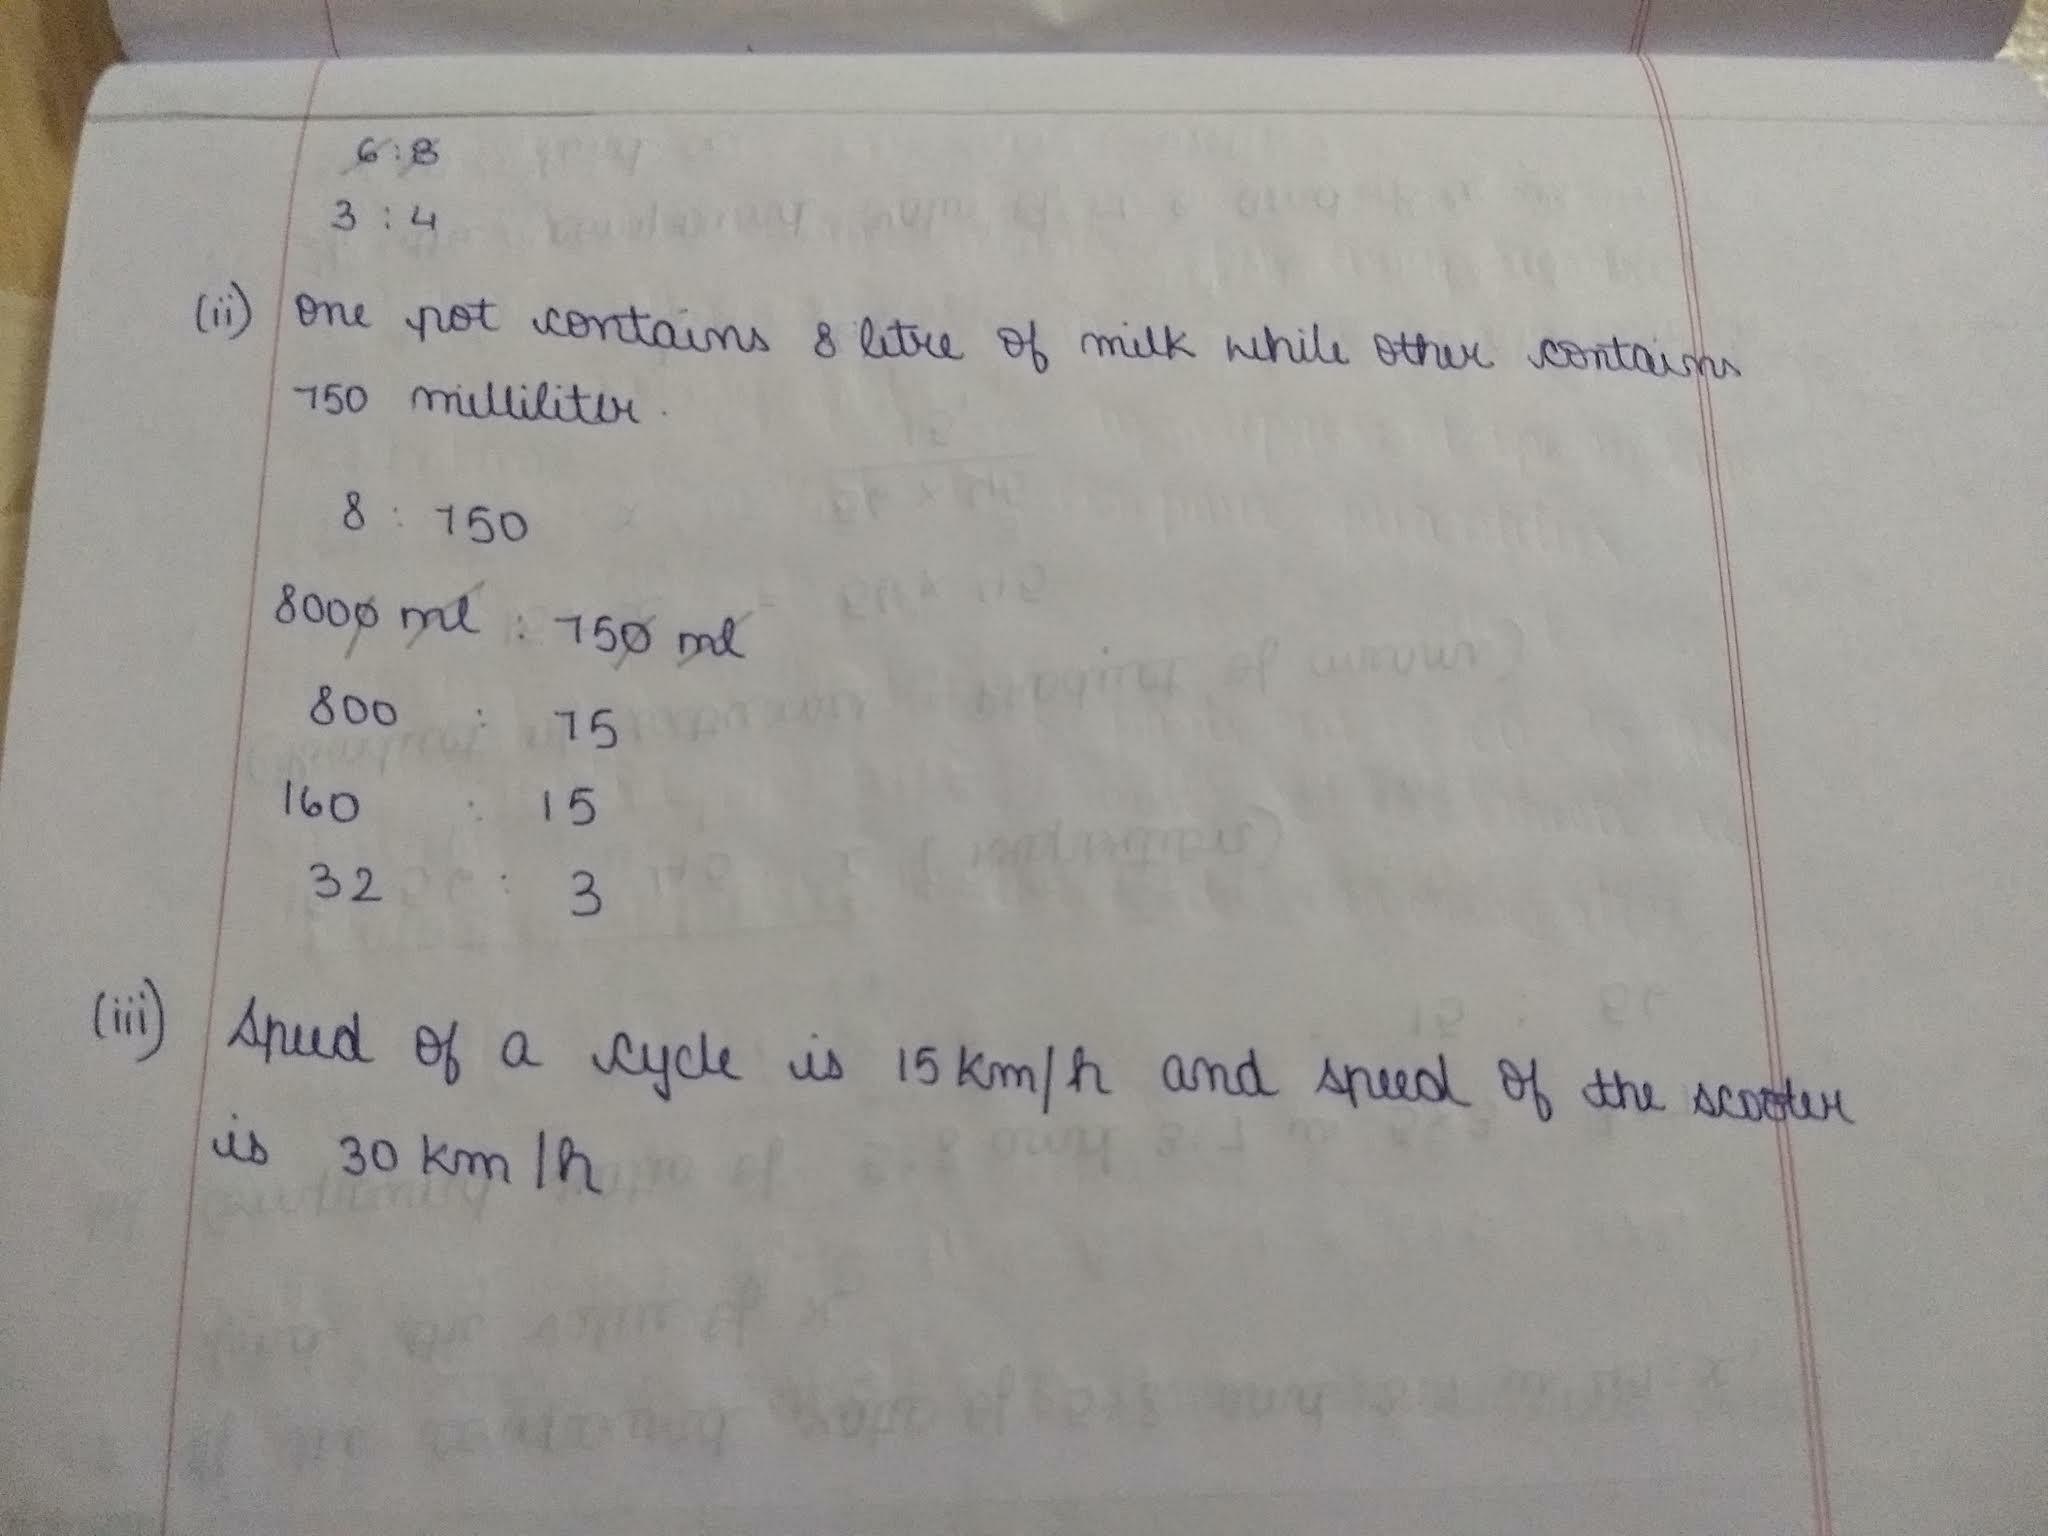 6:8
3 : 4
(ii) One pot contains 8 litre of milk while other contains
750 milliliter.
8 : 750
8000 ml : 750 ml
800 : 75
160 : 15
32 : 3
(iii) Speed of a cycle is 15 km/h and speed of the scooter
is 30 km/h